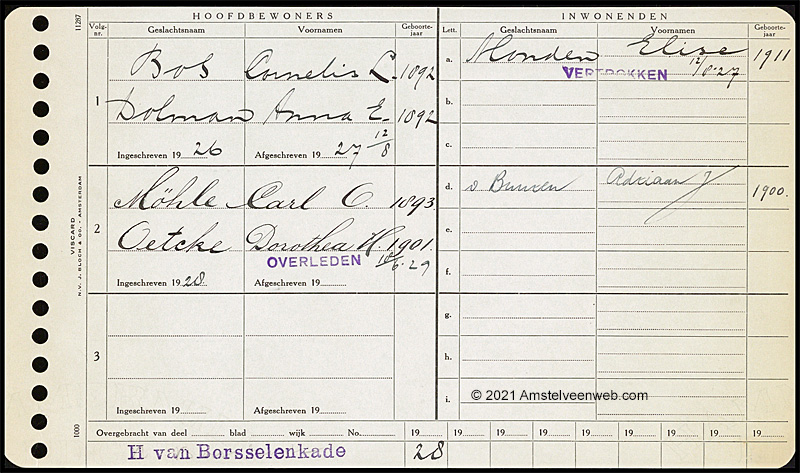 HOOFDBEWONERS
INWONENDEN
Volg-nr.
Geslachtsnaam
Voornamen
Geboorte-jaar
Lett.
Geslachtsnaam
Voornamen
Geboorte-jaar
11287
1
Bos Cornelis L. 1892
Dolman Anna E. 1892
Ingeschreven 19 26
Afgeschreven 19 27 12/8
a. Monden Elize 1911
VERTROKKEN 12/8-27
b.
c.
2
Möhle Carl O. 1893
Oetcke Dorothea H. 1901.
OVERLEDEN 10/6-29
Ingeschreven 19 28
Afgeschreven 19
d. v. Adriaan J 1900.
e.
f.
3
Ingeschreven 19
Afgeschreven 19
g.
h.
i.
© 2021 Amstelveenweb.com
VISCARD
N.V. J. BLOCH & CO. - AMSTERDAM
1000
Overgebracht van deel blad wijk No. 19 19 19 19 19 19 19 19 19
H van Borsselenkade 28